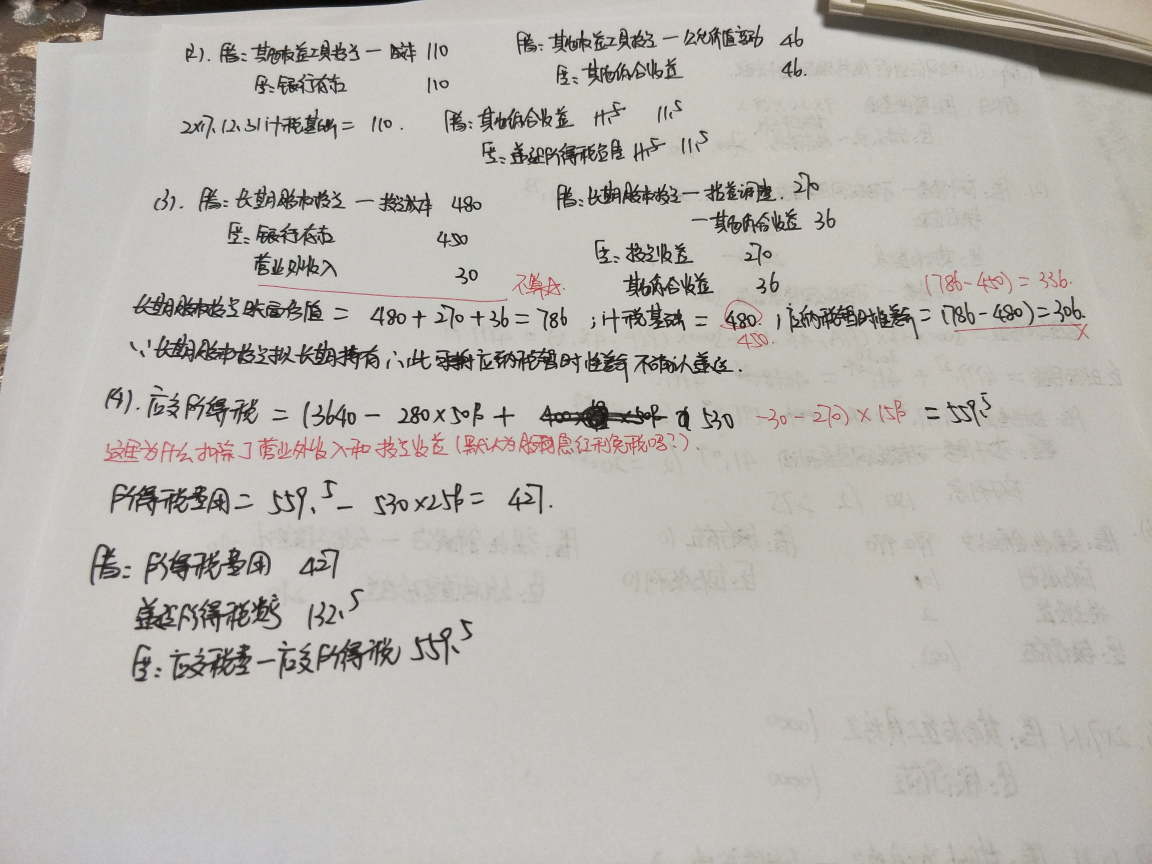 (2). 借：其他权益工具投资—成本 110 借：其他权益工具投资—公允价值变动 46
贷：银行存款 110 贷：其他综合收益 46.
2x17.12.31计税基础 = 110. 借：其他综合收益 11.5 11.5
贷：递延所得税负债 11.5 11.5
(3). 借：长期股权投资—投资成本 480 借：长期股权投资—损益调整 270
贷：银行存款 450 —其他综合收益 36
营业外收入 30 贷：投资收益 270
不算. 其他综合收益 36 (786-450)=336.
长期股权投资账面价值 = 480+270+36=786 ; 计税基础 = 480. ; 应纳税暂时性差异=(786-480)=306.
450 ×
∵长期股权投资拟长期持有 ∴此 应纳税暂时性差异不确认递延.
(4). 应交所得税 = (3640- 280×50% + 530 -30-270)×15% = 559.5
这里为什么扣除了营业外收入和投资收益(默认为股利息红利免税吗?).
所得税费用 = 559.5 - 530×25% = 427.
借：所得税费用 427
递延所得税资产 132.5
贷：应交税费—应交所得税 559.5